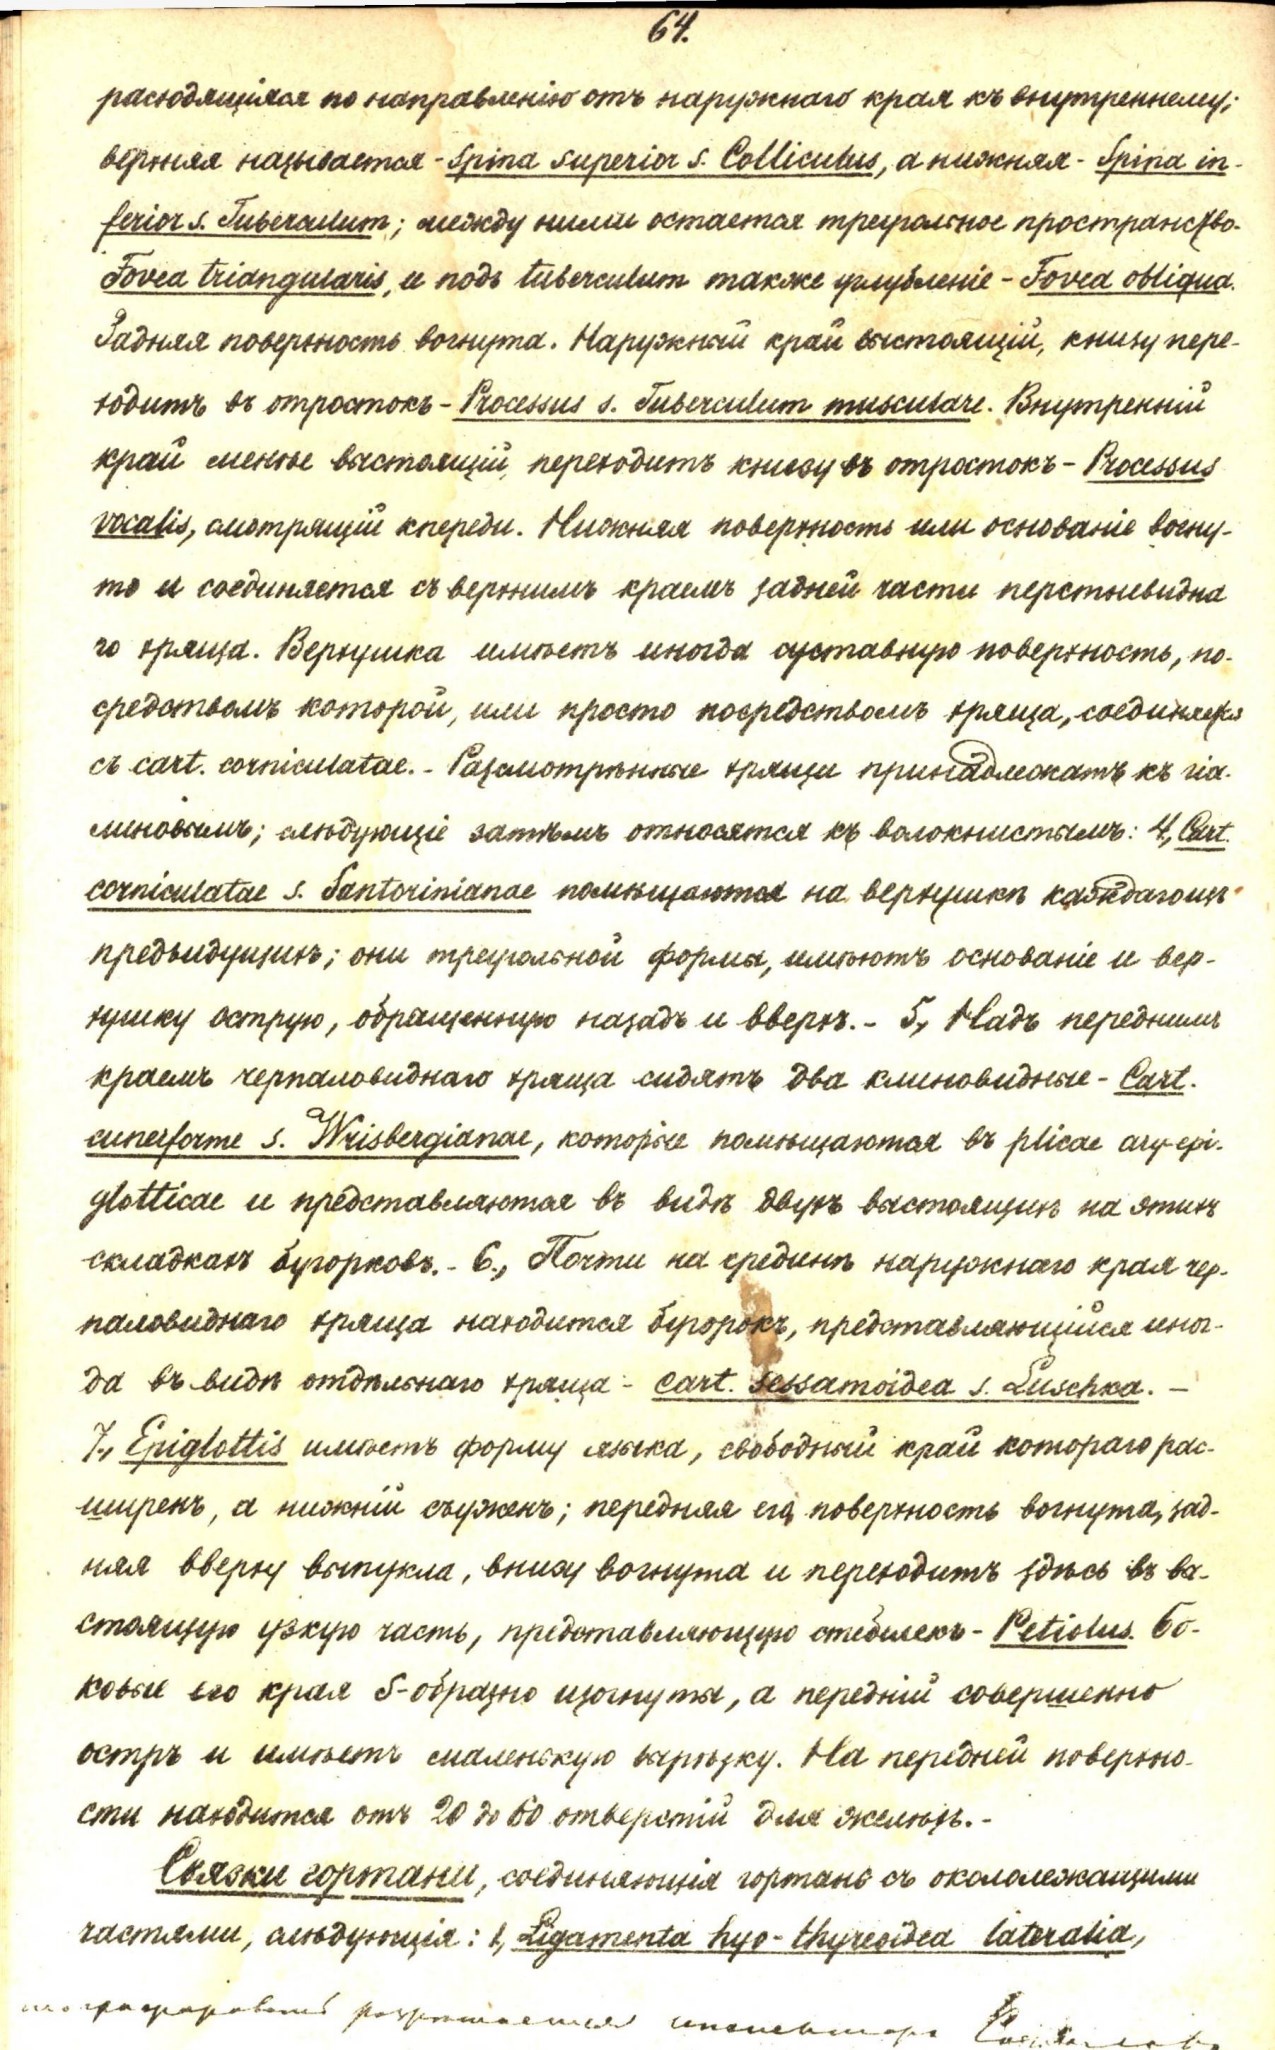 64.
расходящіяся по направленію отъ наружнаго края къ внутреннему;
верхняя называется - Spina superior s. Colliculus, а нижняя - Spina in-
ferior s. Tuberculum; между ними остается треугольное пространство-
Fovea triangularis, и подъ tuberculum также углубленіе - Fovea obliqua.
Задняя поверхность вогнута. Наружный край выстоящій, книзу пере-
ходитъ въ отростокъ - Processus s. Tuberculum musculare. Внутренній
край менѣе выстоящій, переходитъ книзу въ отростокъ - Processus
vocalis, смотрящій кпереди. Нижняя поверхность или основаніе вогну-
то и соединяется съ верхнимъ краемъ задней части перстневидна
го хряща. Верхушка имѣетъ иногда суставную поверхность, по-
средствомъ которой, или просто посредствомъ хряща, соединяется
съ cart. corniculatae. - Разсмотрѣнные хрящи принадлежатъ къ гіа-
линовымъ; слѣдующіе затѣмъ относятся къ волокнистымъ: 4, Cart.
corniculatae s. Santorinianae помѣщаются на верхушкѣ каждаго изъ
предъидущихъ; они треугольной формы, имѣютъ основаніе и вер-
хушку острую, обращенную назадъ и вверхъ. - 5, Надъ переднимъ
краемъ черпаловиднаго хряща сидятъ два клиновидные - Cart.
cuneiforme s. Wrisbergianae, которые помѣщаются въ plicae ary-epi-
glotticae и представляются въ видѣ двухъ выстоящихъ на этихъ
складкахъ бугорковъ. - 6., Почти на срединѣ наружнаго края чер-
паловиднаго хряща находится бугорокъ, представляющійся иног-
да въ видѣ отдѣльнаго хряща - cart. sessamoidea s. Luschka. -
7., Epiglottis имѣетъ форму языка, свободный край котораго рас-
ширенъ, а нижній съуженъ; передняя его поверхность вогнута, зад-
няя вверху выпукла, внизу вогнута и переходитъ здѣсь въ вы-
стоящую узкую часть, представляющую стебелекъ - Petiolus. Бо-
ковые его края S-образно изогнуты, а передній совершенно
остръ и имѣетъ маленькую вырѣзку. На передней поверхно-
сти находится отъ 20 до 60 отверстій для железъ. -
Связки гортани, соединяющія гортань съ окололежащими
частями, слѣдующія: 1, Ligamenta hyo-thyreoidea lateralia,
разрешается